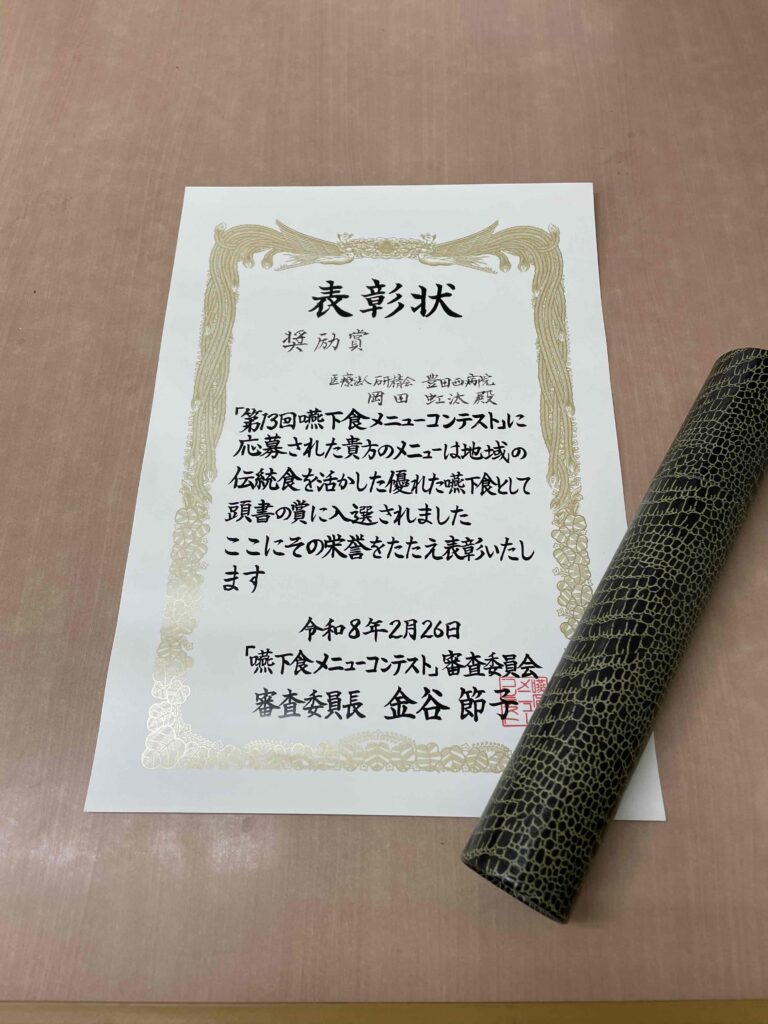 表彰状
奨励賞
医療法人研精会 豊田西病院
岡田 虹汰 殿
「第13回嚥下食メニューコンテスト」に
応募された貴方のメニューは地域の
伝統食を活かした優れた嚥下食として
頭書の賞に入選されました
ここにその栄誉をたたえ表彰いたし
ます
令和8年2月26日
「嚥下食メニューコンテスト」審査委員会
審査委員長 金谷 節子